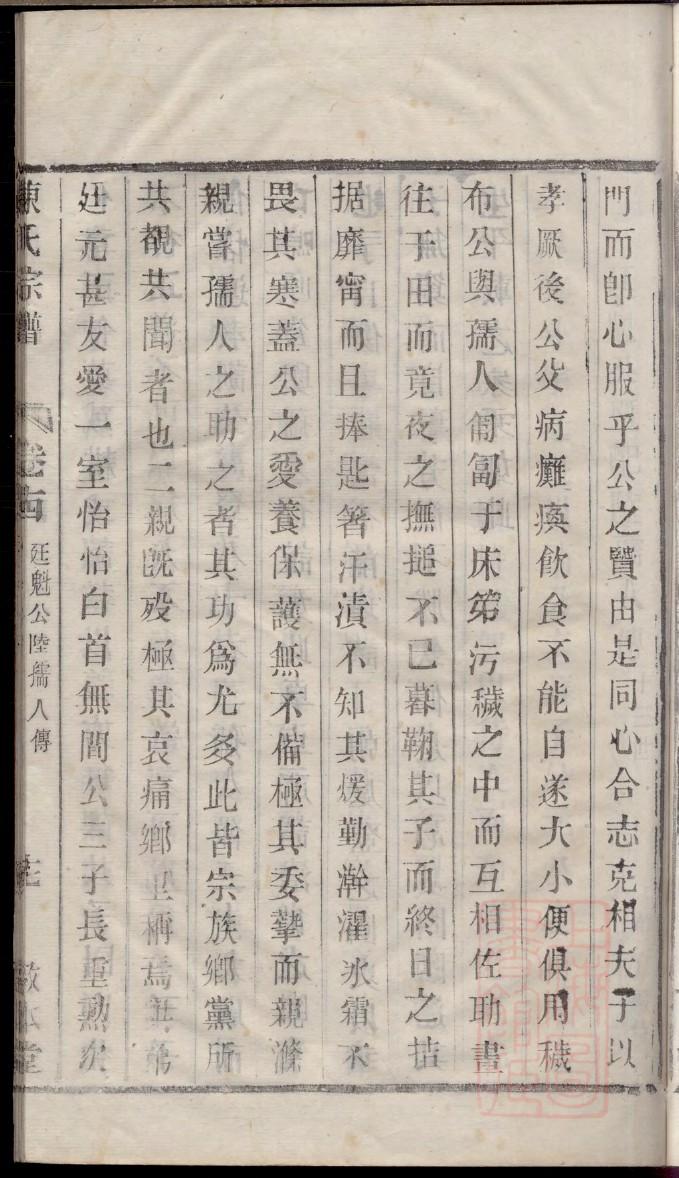 門而卽心服乎公之賢由是同心合志克相夫子以
孝厥後公父病癱瘓飲食不能自遂大小便俱用穢
布公與孺人匍匐于床第污穢之中而互相佐助晝
往于田而竟夜之撫搥不已暮鞠其子而終日之拮
据靡甯而且捧匙箸汗漬不知其煖勤澣濯氷霜不
畏其寒蓋公之愛養保護無不備極其委摯而親滌
親嘗孺人之助之者其功爲尤多此皆宗族鄉黨所
共覩共聞者也二親旣歿極其哀痛鄉里稱焉其弟
廷元甚友愛一室怡怡白首無間公三子長重勲次
陳氏宗譜
卷
廷魁公陸孺人傳
敦本堂